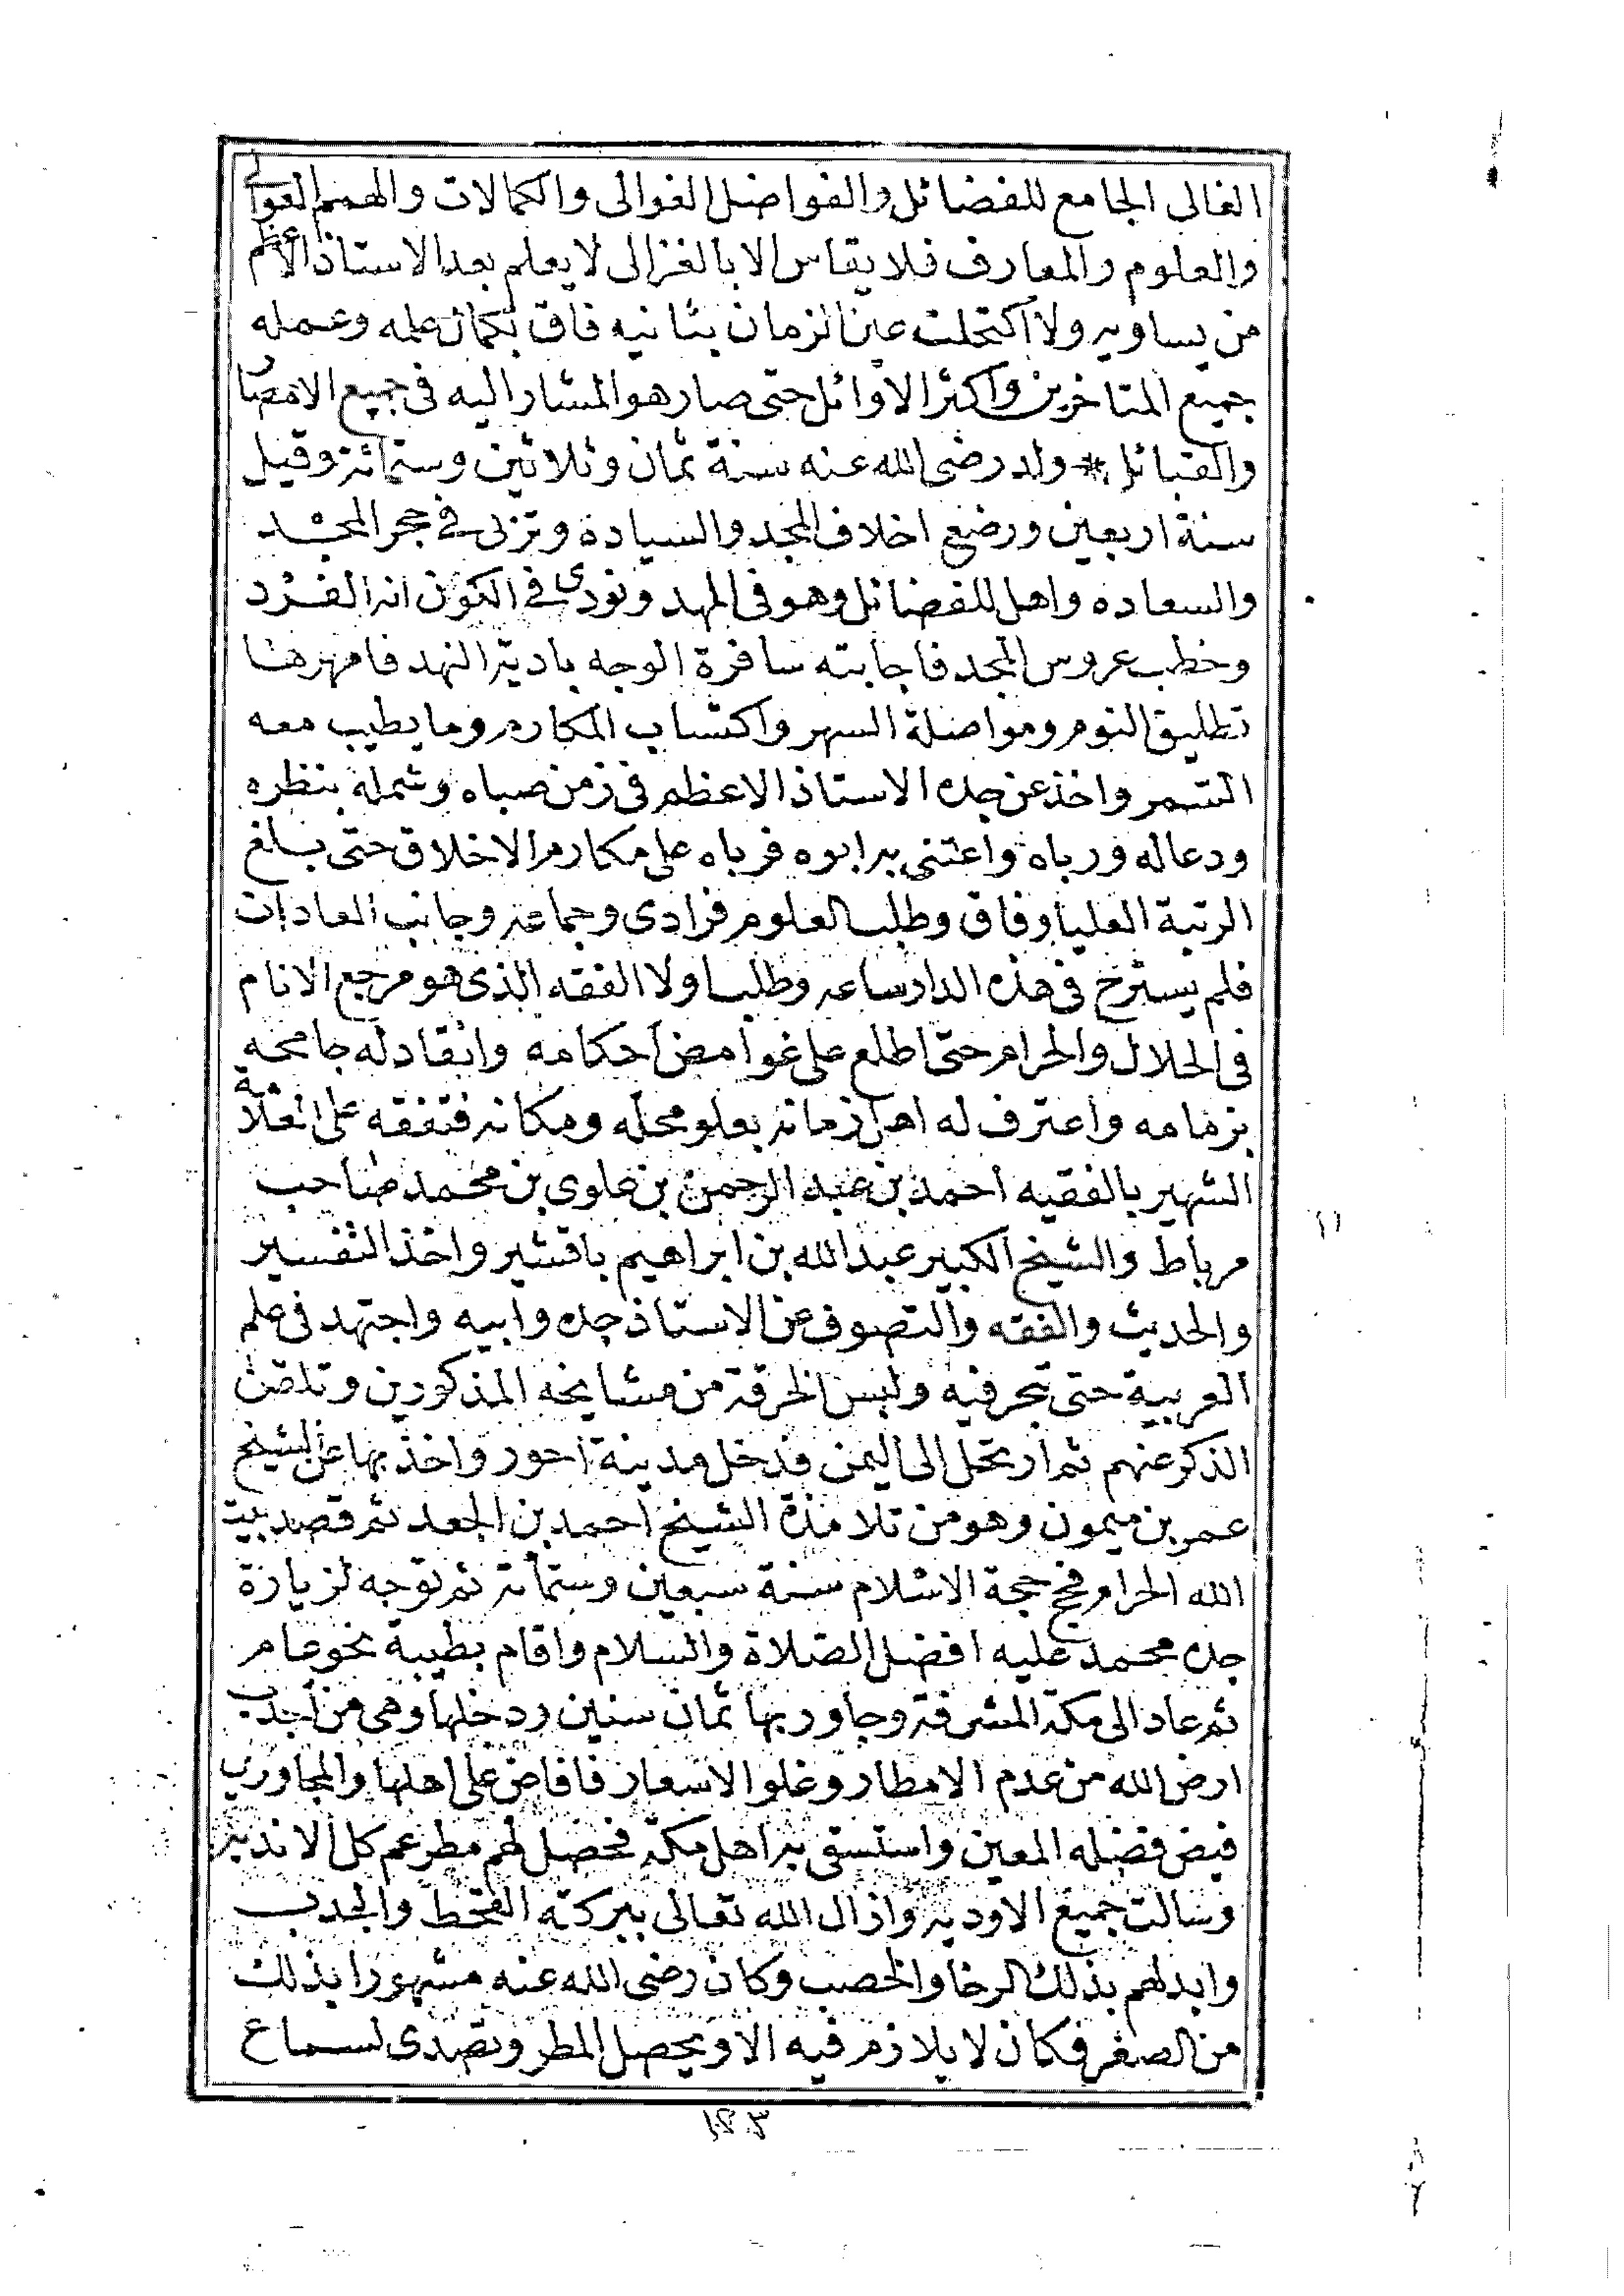 الغالى الجامع للفضائل والفواضل الغوالى والكمالات والهمم العوالى
والعلوم والمعارف فلا يقاس الا بالغزالى لا يعلم بعد الاستاذ الاعظم
من يساويه ولا اكتحلت عين الزمان بثانيه فاق بكمال علمه وعمله
جميع المتاخرين واكثر الاوائل حتى صار هو المشار اليه فى جميع الامصار
والقبائل * ولد رضى الله عنه سنة ثمان وثلاثين وستمائة وقيل
سنة اربعين ورضع اخلاف المجد والسيادة وتربى فى حجر المجد
والسعاده واهل للفضائل وهو فى المهد ونودى فى الكون انه الفرد
وخطب عروس المجد فاجابته سافرة الوجه بادية النهد فامهرها
تطليق النوم ومواصلة السهر واكتساب المكارم وما يطيب معه
السمر واخذ عن جده الاستاذ الاعظم فى زمن صباه وشمله بنظره
ودعا له ورباه واعتنى به ابوه فرباه على مكارم الاخلاق حتى بلغ
الرتبة العليا وفاق وطلب العلوم فرادى وجماعه وجانب العادات
فلم يسترح فى هذه الدار ساعه وطلب اولا الفقه الذى هو مرجع الانام
فى الحلال والحرام حتى اطلع على غوامض احكامه وانقاد له جامحه
بزمامه واعترف له اهل زمانه بعلو محله ومكانه فتفقه على العلامة
الشهير بالفقيه احمد بن عبد الرحمن بن علوى بن محمد صاحب
مرباط والشيخ الكبير عبد الله بن ابراهيم باقشير واخذ التفسير
والحديث والفقه والتصوف عن الاستاذ جده وابيه واجتهد فى علم
العربية حتى تبحر فيه ولبس الخرقة من مشايخه المذكورين وتلقن
الذكر عنهم ثم ارتحل الى اليمن فدخل مدينة احور واخذ بها عن الشيخ
عمر بن ميمون وهو من تلامذة الشيخ احمد بن الجعد ثم قصد بيت
الله الحرام فحج حجة الاسلام سنة سبعين وستمأئة ثم توجه لزيارة
جده محمد عليه افضل الصلاة والسلام واقام بطيبة نحو عام
ثم عاد الى مكة المشرفة وجاور بها ثمان سنين ودخلها وهى من اجدب
ارض الله من عدم الامطار وغلو الاسعار فافاض على اهلها والمجاورين
فيض فضله المعين واستسقى به اهل مكة فحصل لهم مطر عم كل الانديه
وسالت جميع الاوديه وازال الله تعالى ببركته القحط والجدب
وابدلهم بذلك الرخا والخصب وكان رضى الله عنه مشهورا بذلك
من الصغر فكان لا يلازم فيه الا ويحصل المطر وتصدى لسماع